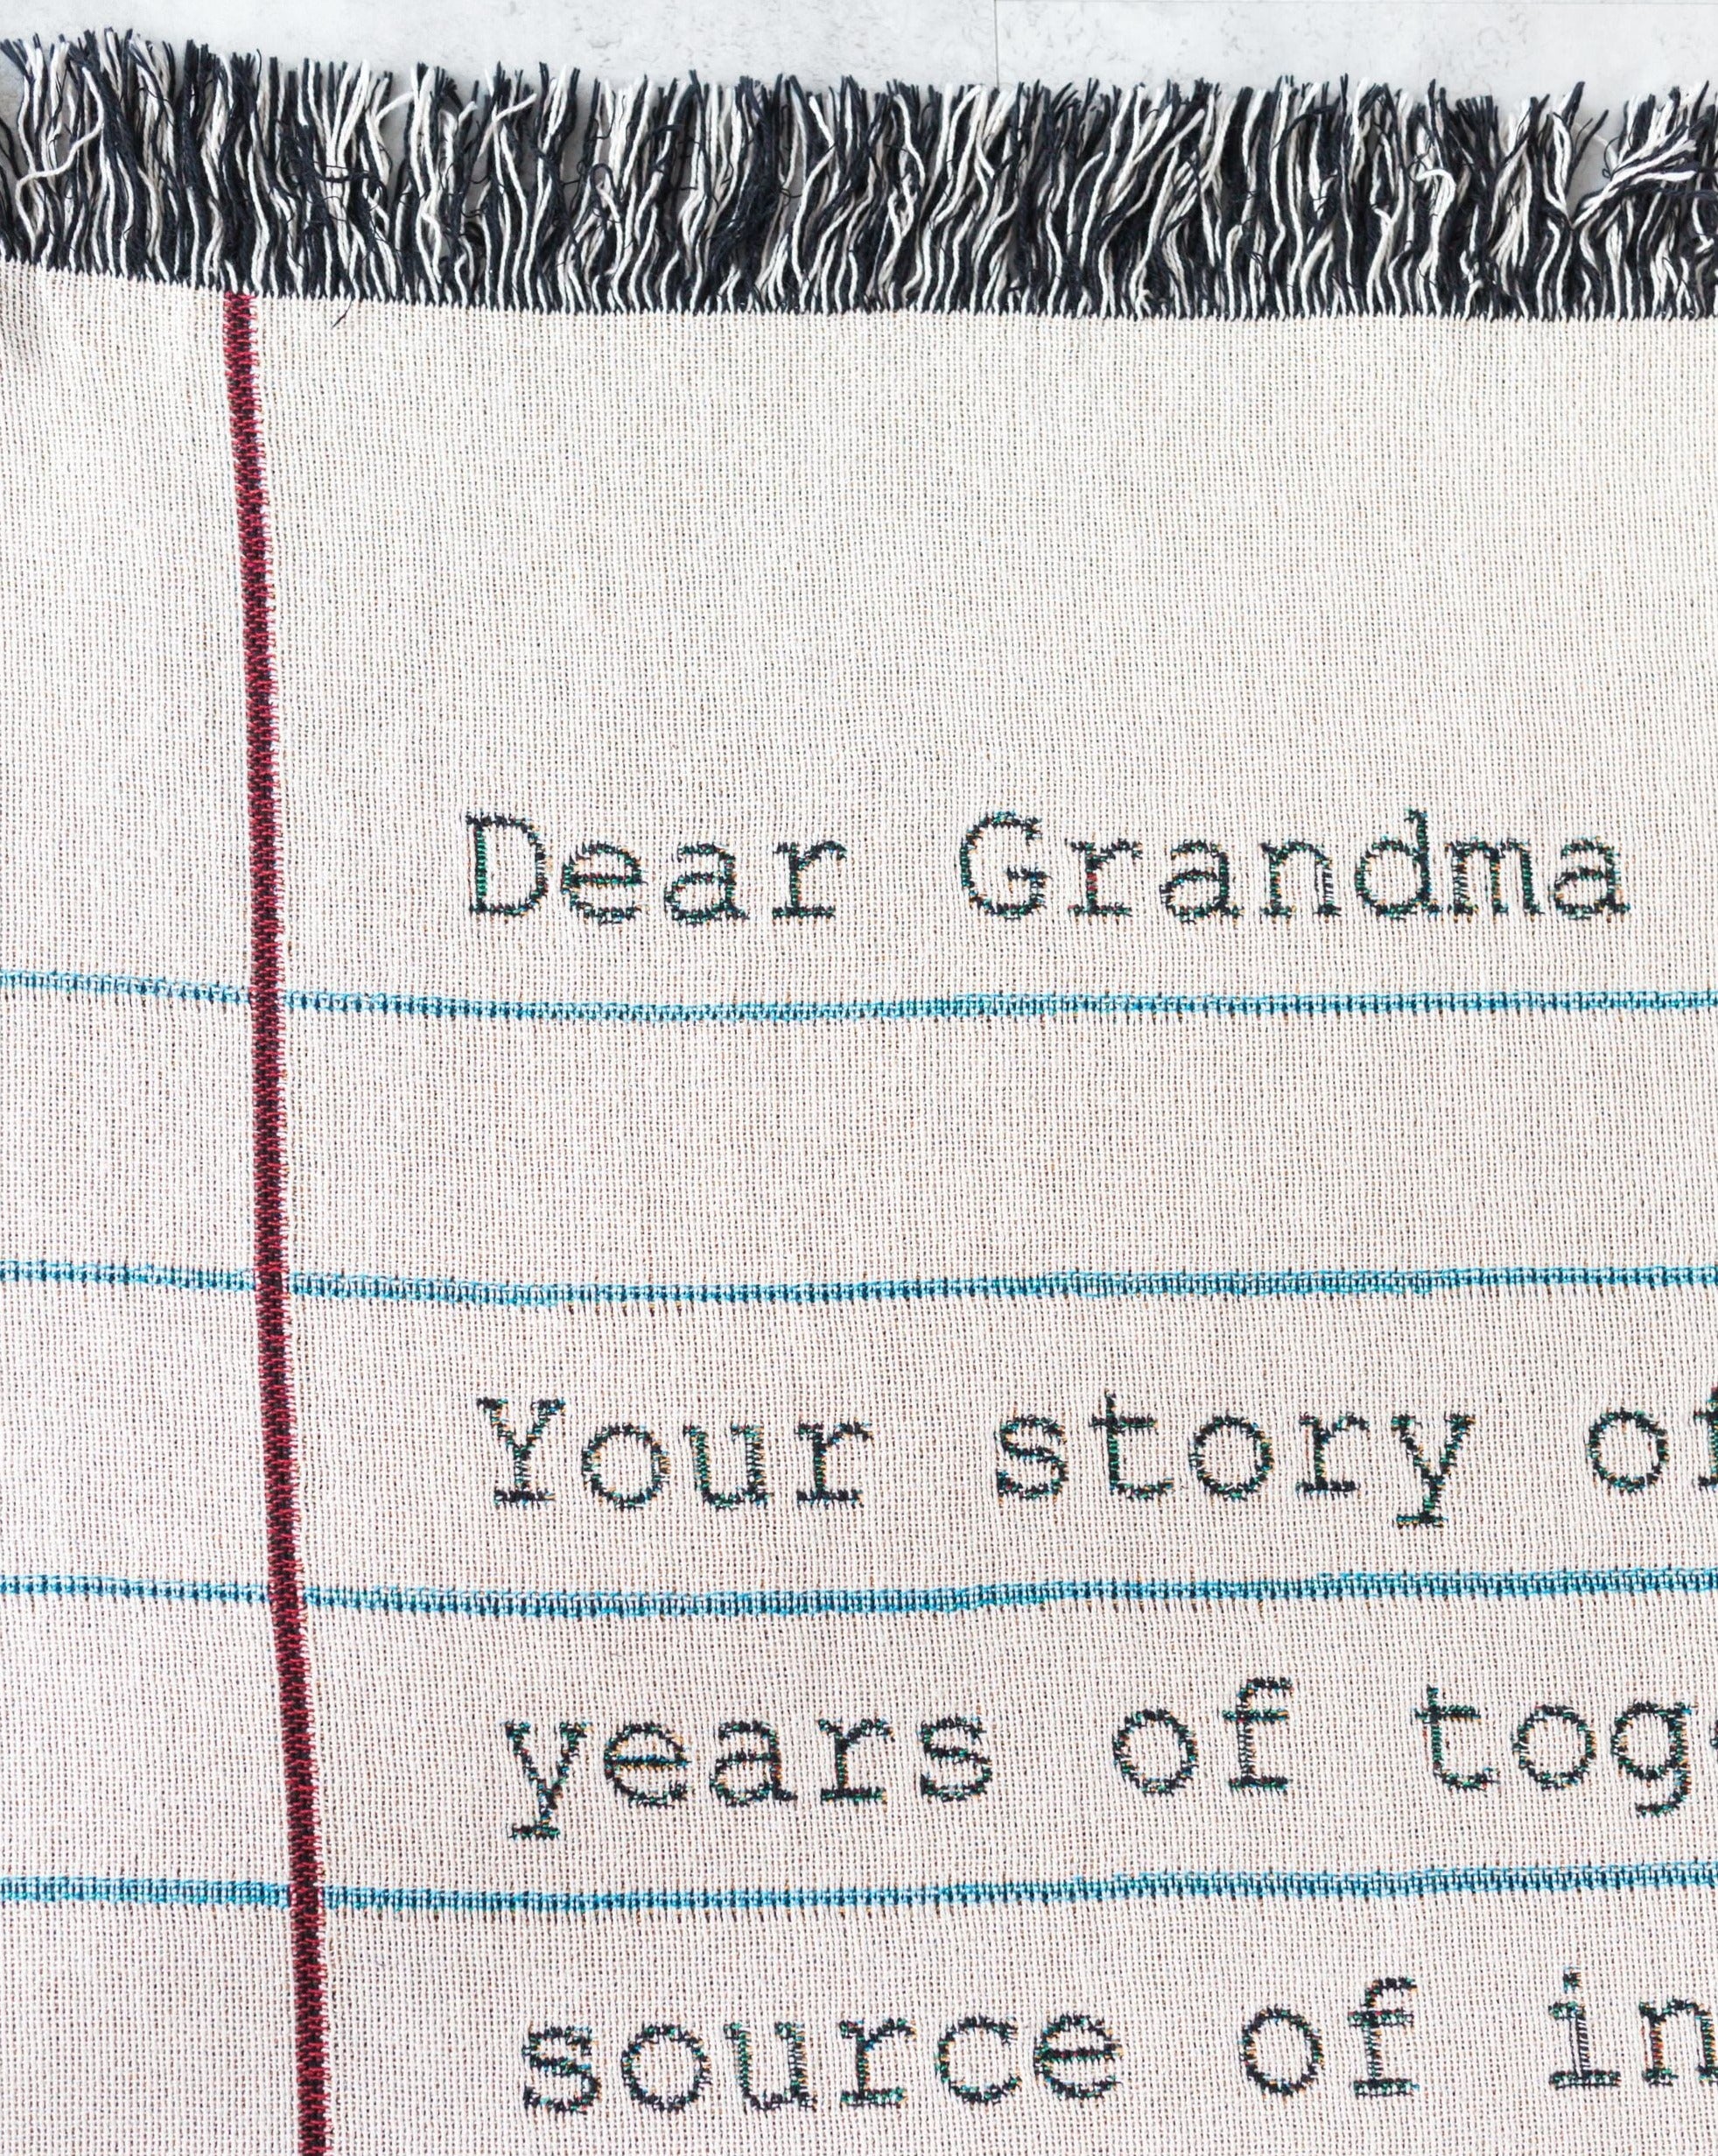 Dear Grandma
Your story of
years of tog
source of in